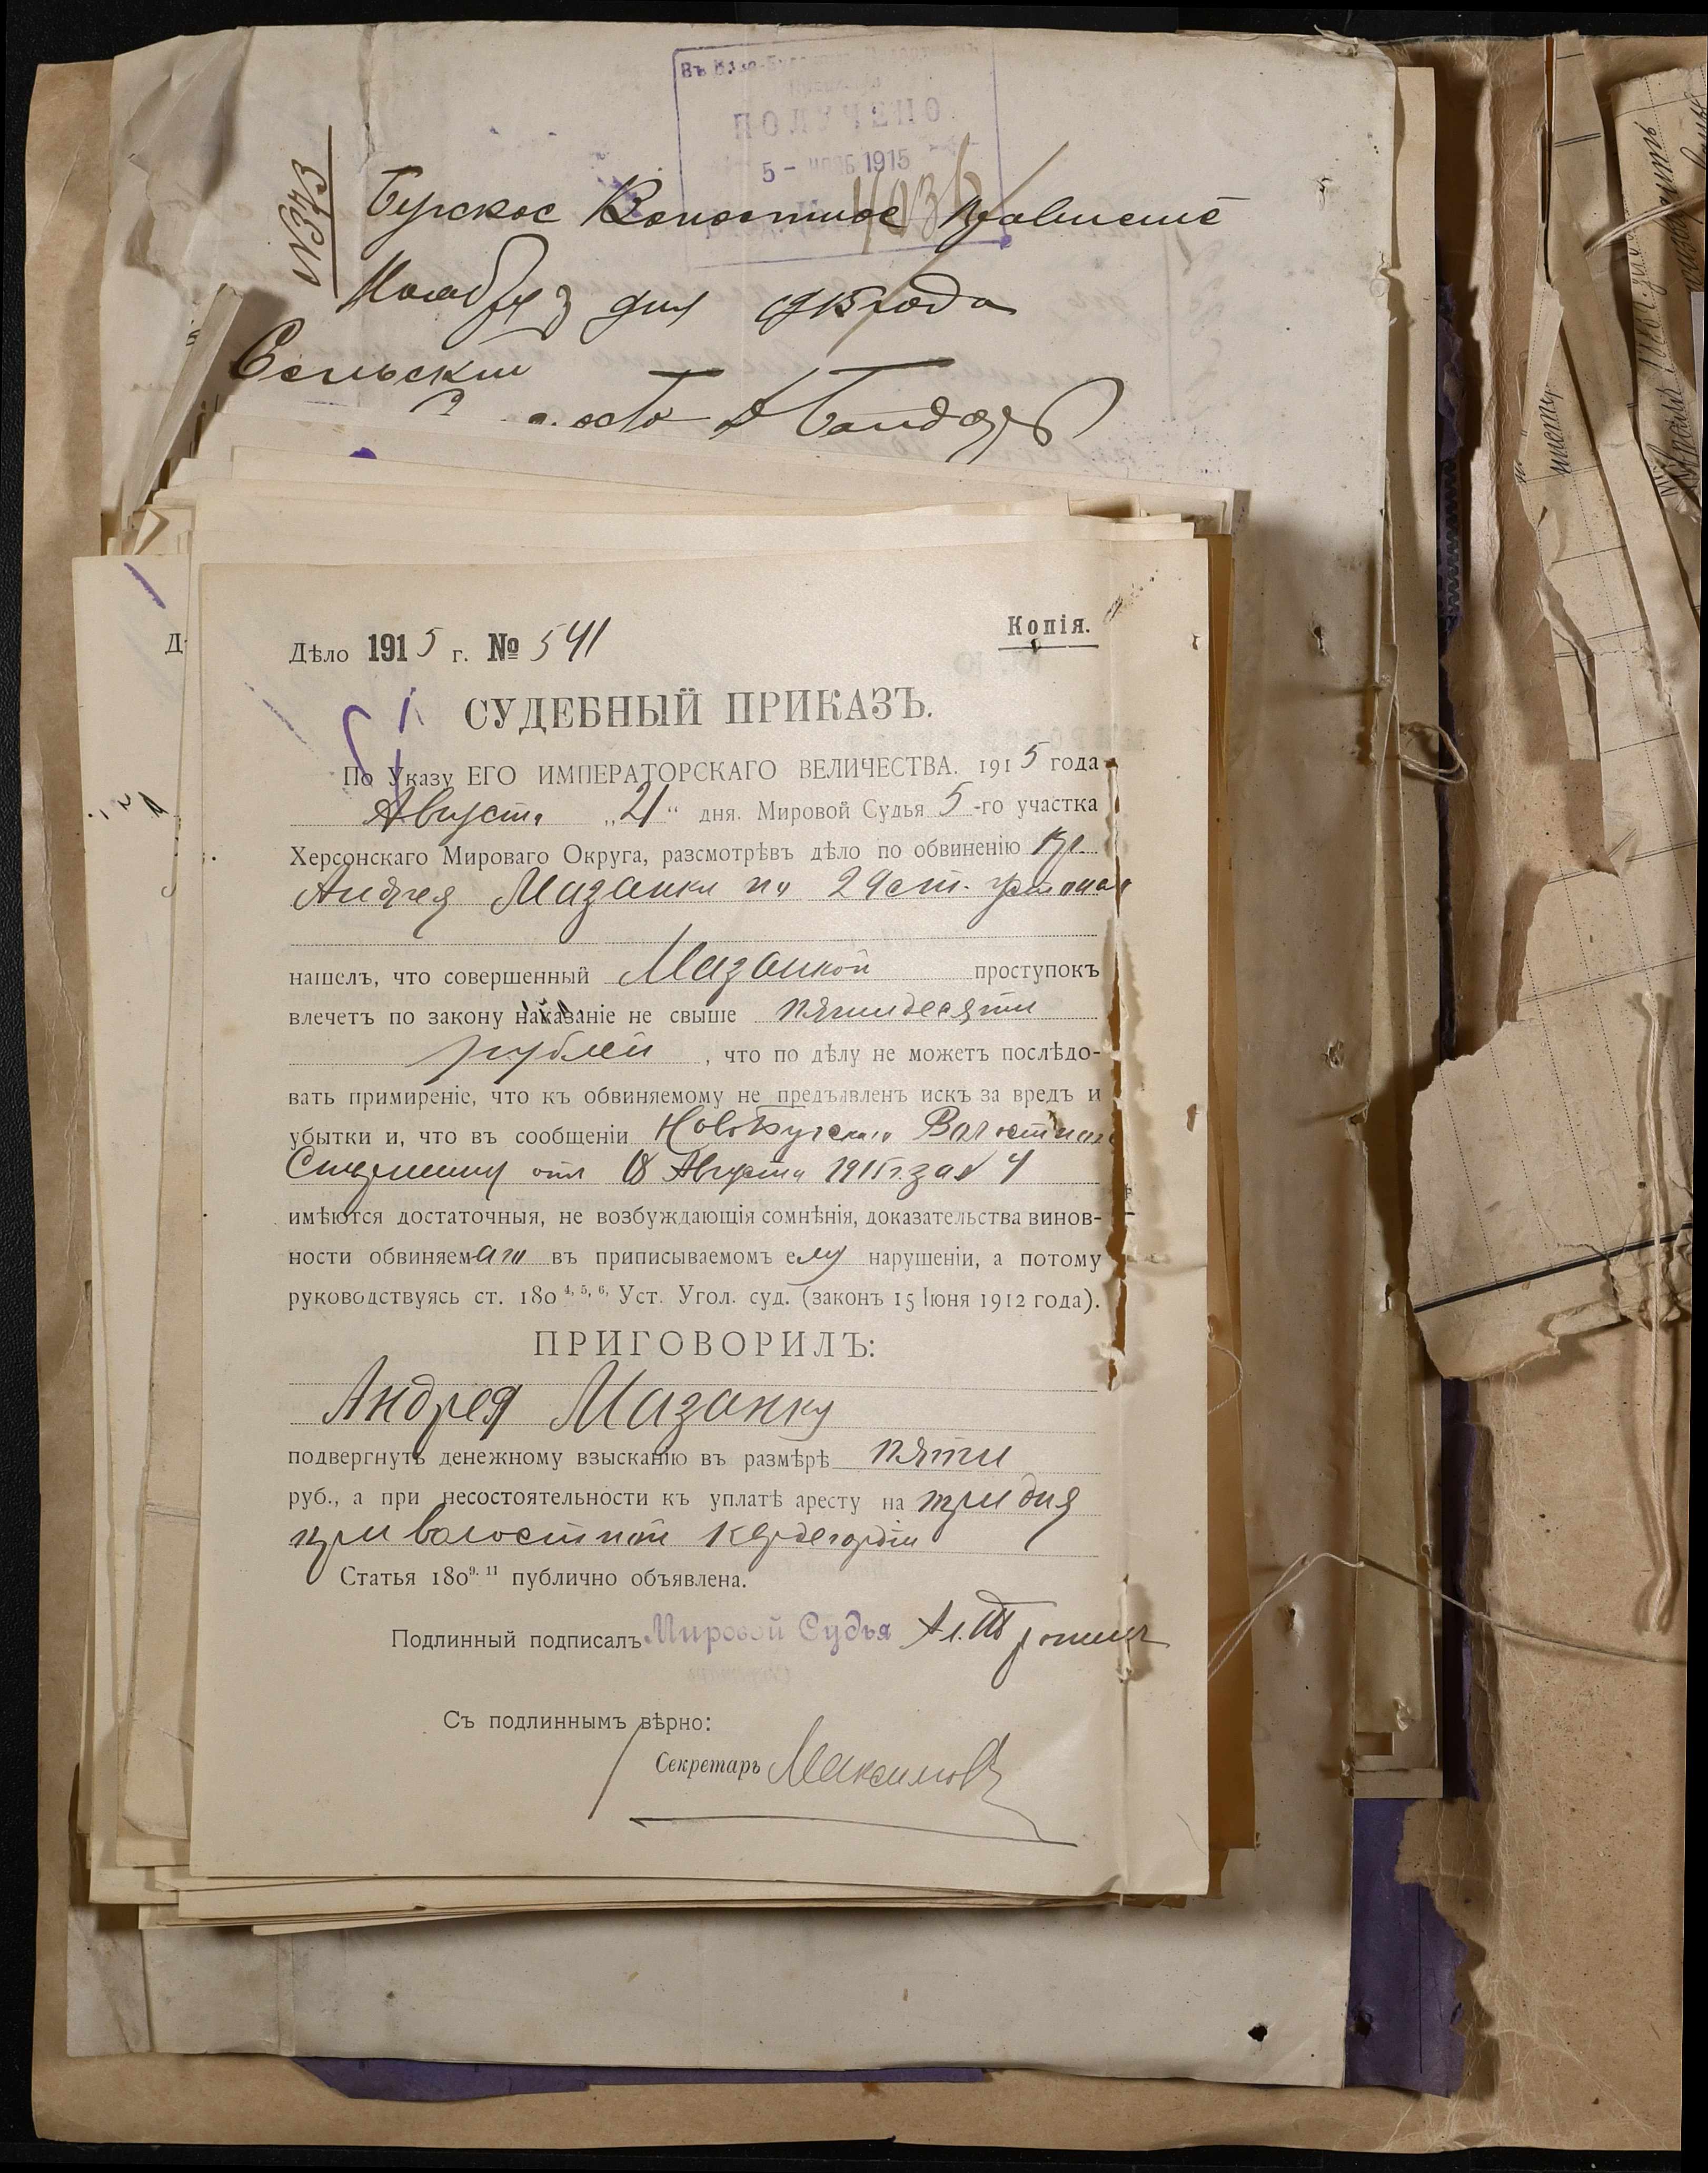 ПОЛУЧЕНО
5 - 1915
№373
Волостное Правление
Ноября 3 дня 1915 года
Сельский
Дѣло 1915 г. № 541
Копія.
СУДЕБНЫЙ ПРИКАЗЪ.
По Указу ЕГО ИМПЕРАТОРСКАГО ВЕЛИЧЕСТВА. 1915 года
Августа „21“ дня. Мировой Судья 5-го участка
Херсонскаго Мироваго Округа, разсмотрѣвъ дѣло по обвиненію кр.
Андрея Мазанки по 29 ст. уст. о нак.
нашелъ, что совершенный Мазанкой проступокъ
влечетъ по закону наказаніе не свыше пятидесяти
рублей, что по дѣлу не можетъ послѣдо-
вать примиреніе, что къ обвиняемому не предъявленъ искъ за вредъ и
убытки и, что въ сообщеніи Новобугскаго Волостнаго
Старшины отъ 18 Августа 1915 г. за № 4
имѣются достаточныя, не возбуждающія сомнѣнія, доказательства винов-
ности обвиняемаго въ приписываемомъ ему нарушеніи, а потому
руководствуясь ст. 180 4, 5, 6, Уст. Угол. суд. (законъ 15 Іюня 1912 года).
ПРИГОВОРИЛЪ:
Андрея Мазанку
подвергнуть денежному взысканію въ размѣрѣ пяти
руб., а при несостоятельности къ уплатѣ аресту на три дня
при волостной кордегардіи
Статья 180 9. 11 публично объявлена.
Подлинный подписалъ Мировой Судья
Съ подлиннымъ вѣрно:
Секретарь Максимов